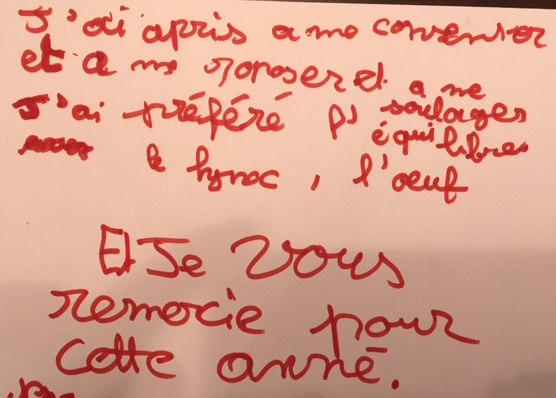 J'ai apris a me consenter
et a me roposer et a me soulager
J'ai préféré l' équilibre
le hynoc, l'oeuf
Et Je vous
remercie pour
cette anné.